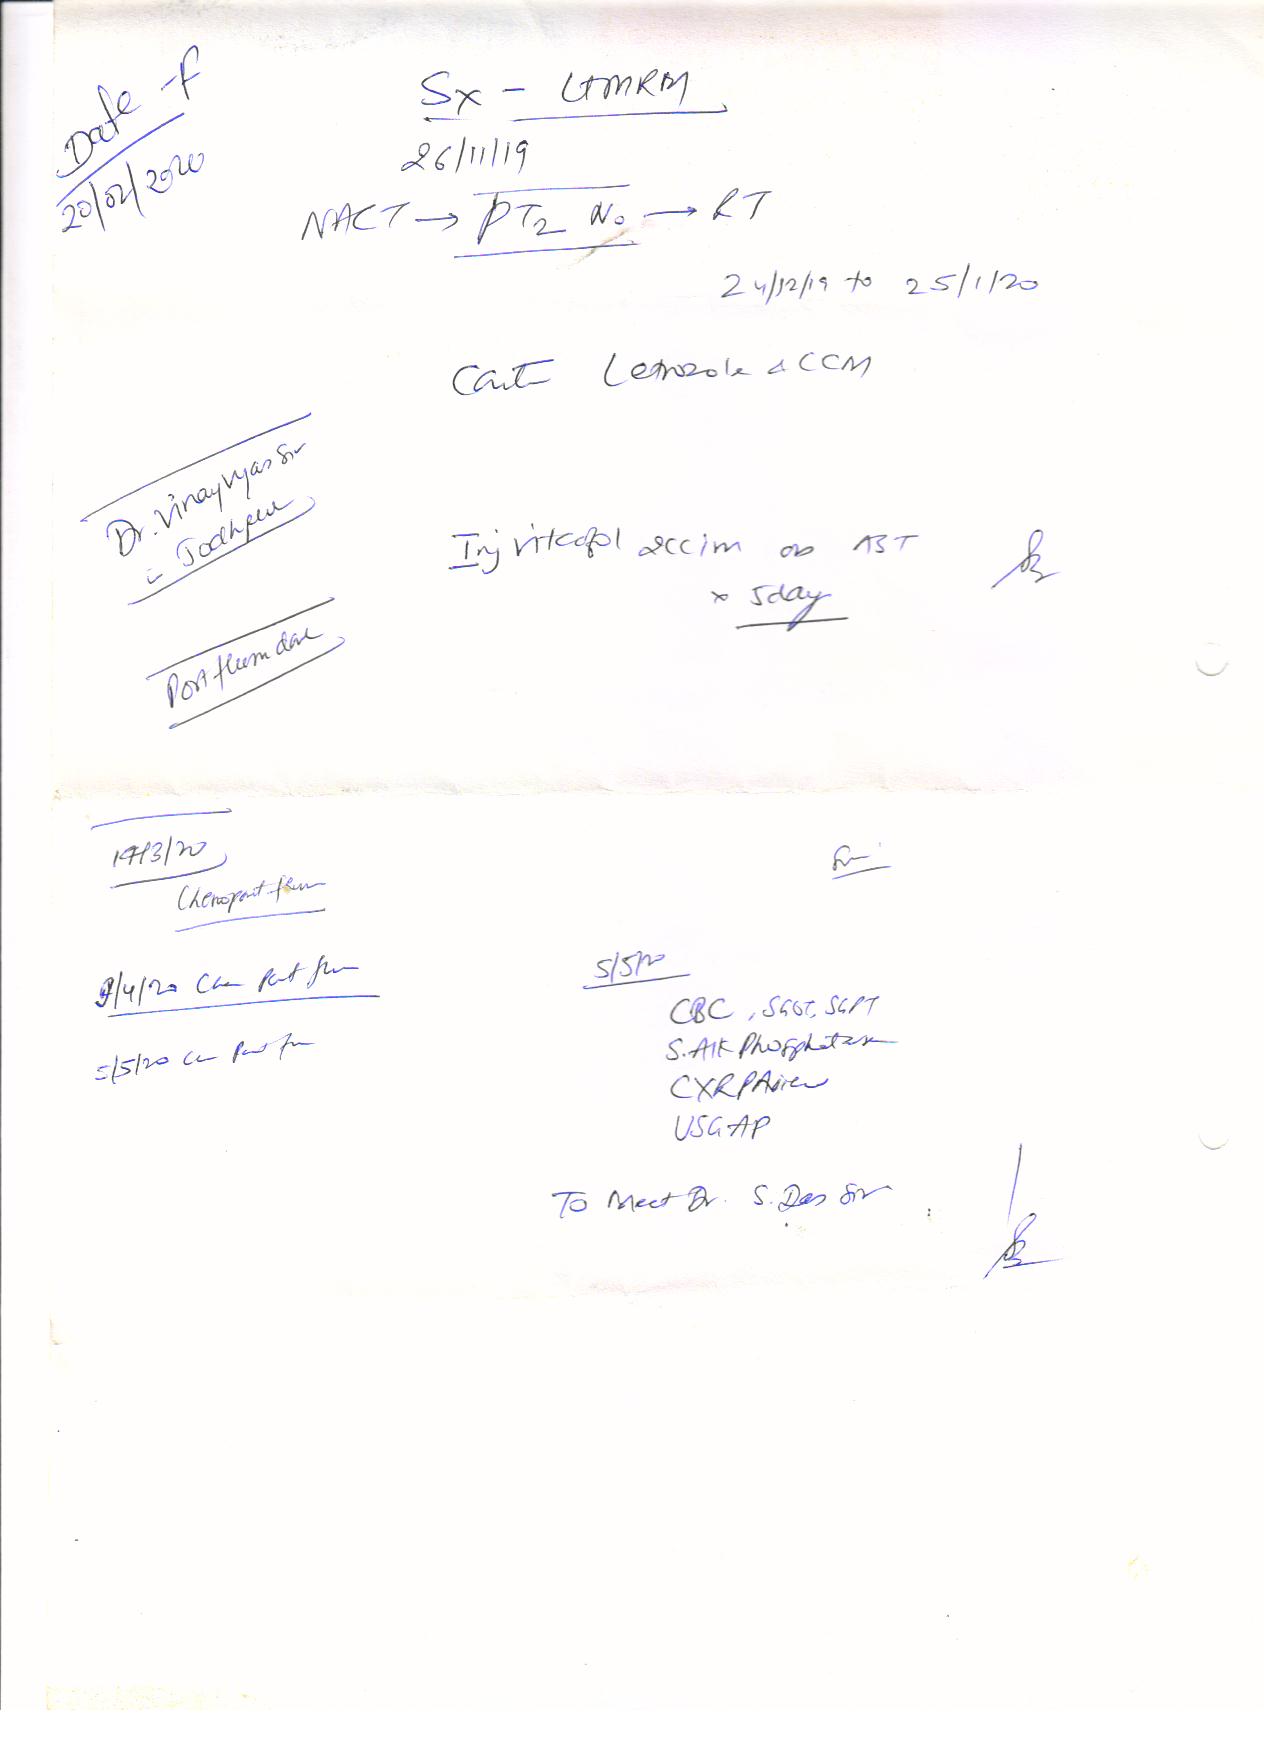 Date -f
20/02/2020
Sx - LtMRM
26/11/19
NACT → PT2 No → RT
24/12/19 to 25/1/20
Cont Letrozole & CCM
Dr. Vinay Vyas Sir
Jodhpur
Inj Vitcofol 2cc im AST
x 5day
Port flum done
/3/20
Chemoport flum
9/4/20 Che Port flum
5/5/20 Che Port flum
5/5/20
CBC, SGOT, SGPT
S. Alk Phosphatase
CXR PA view
USG AP
To Meet Dr. S. Das Sir